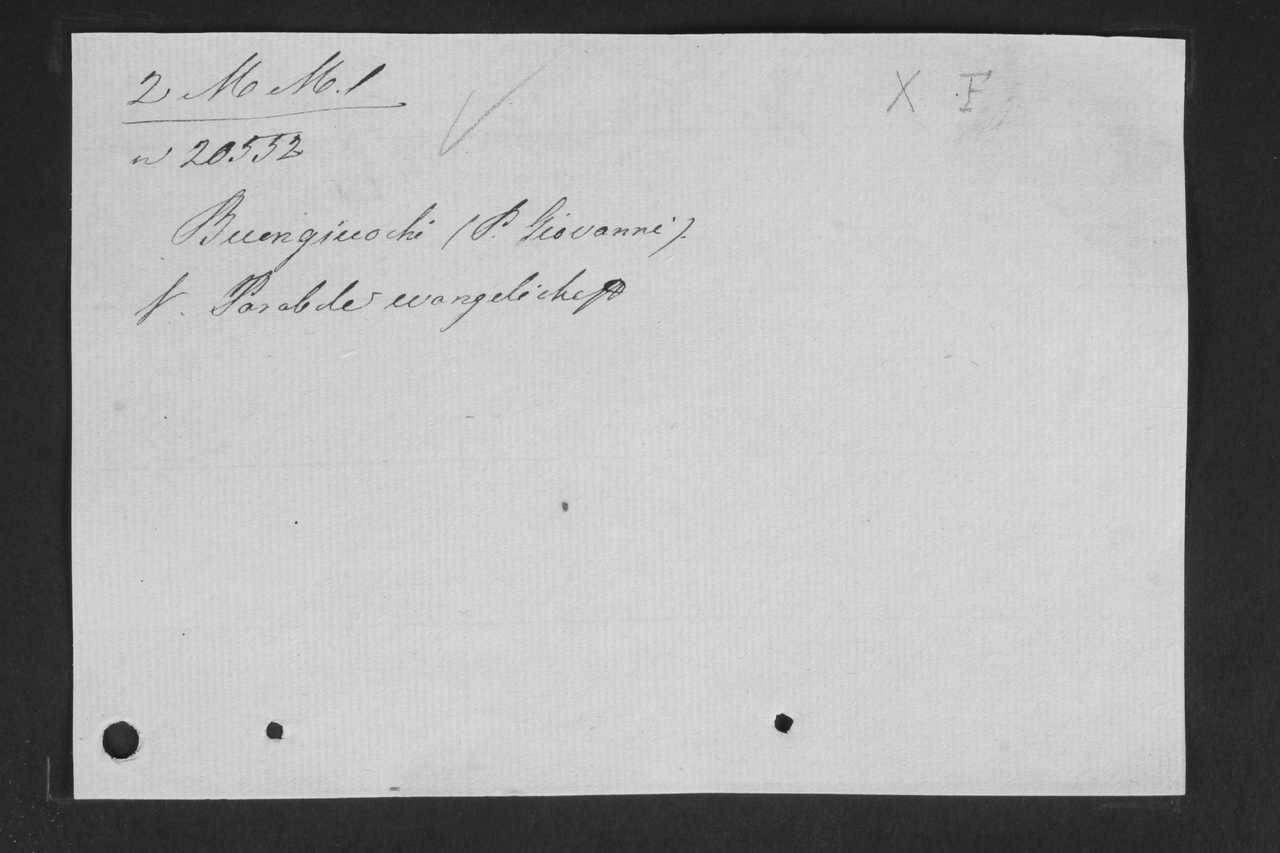 2 M M. 1
X F
n 20552
Buongiuochi (P. Giovanni).
V. Parabole evangeliche